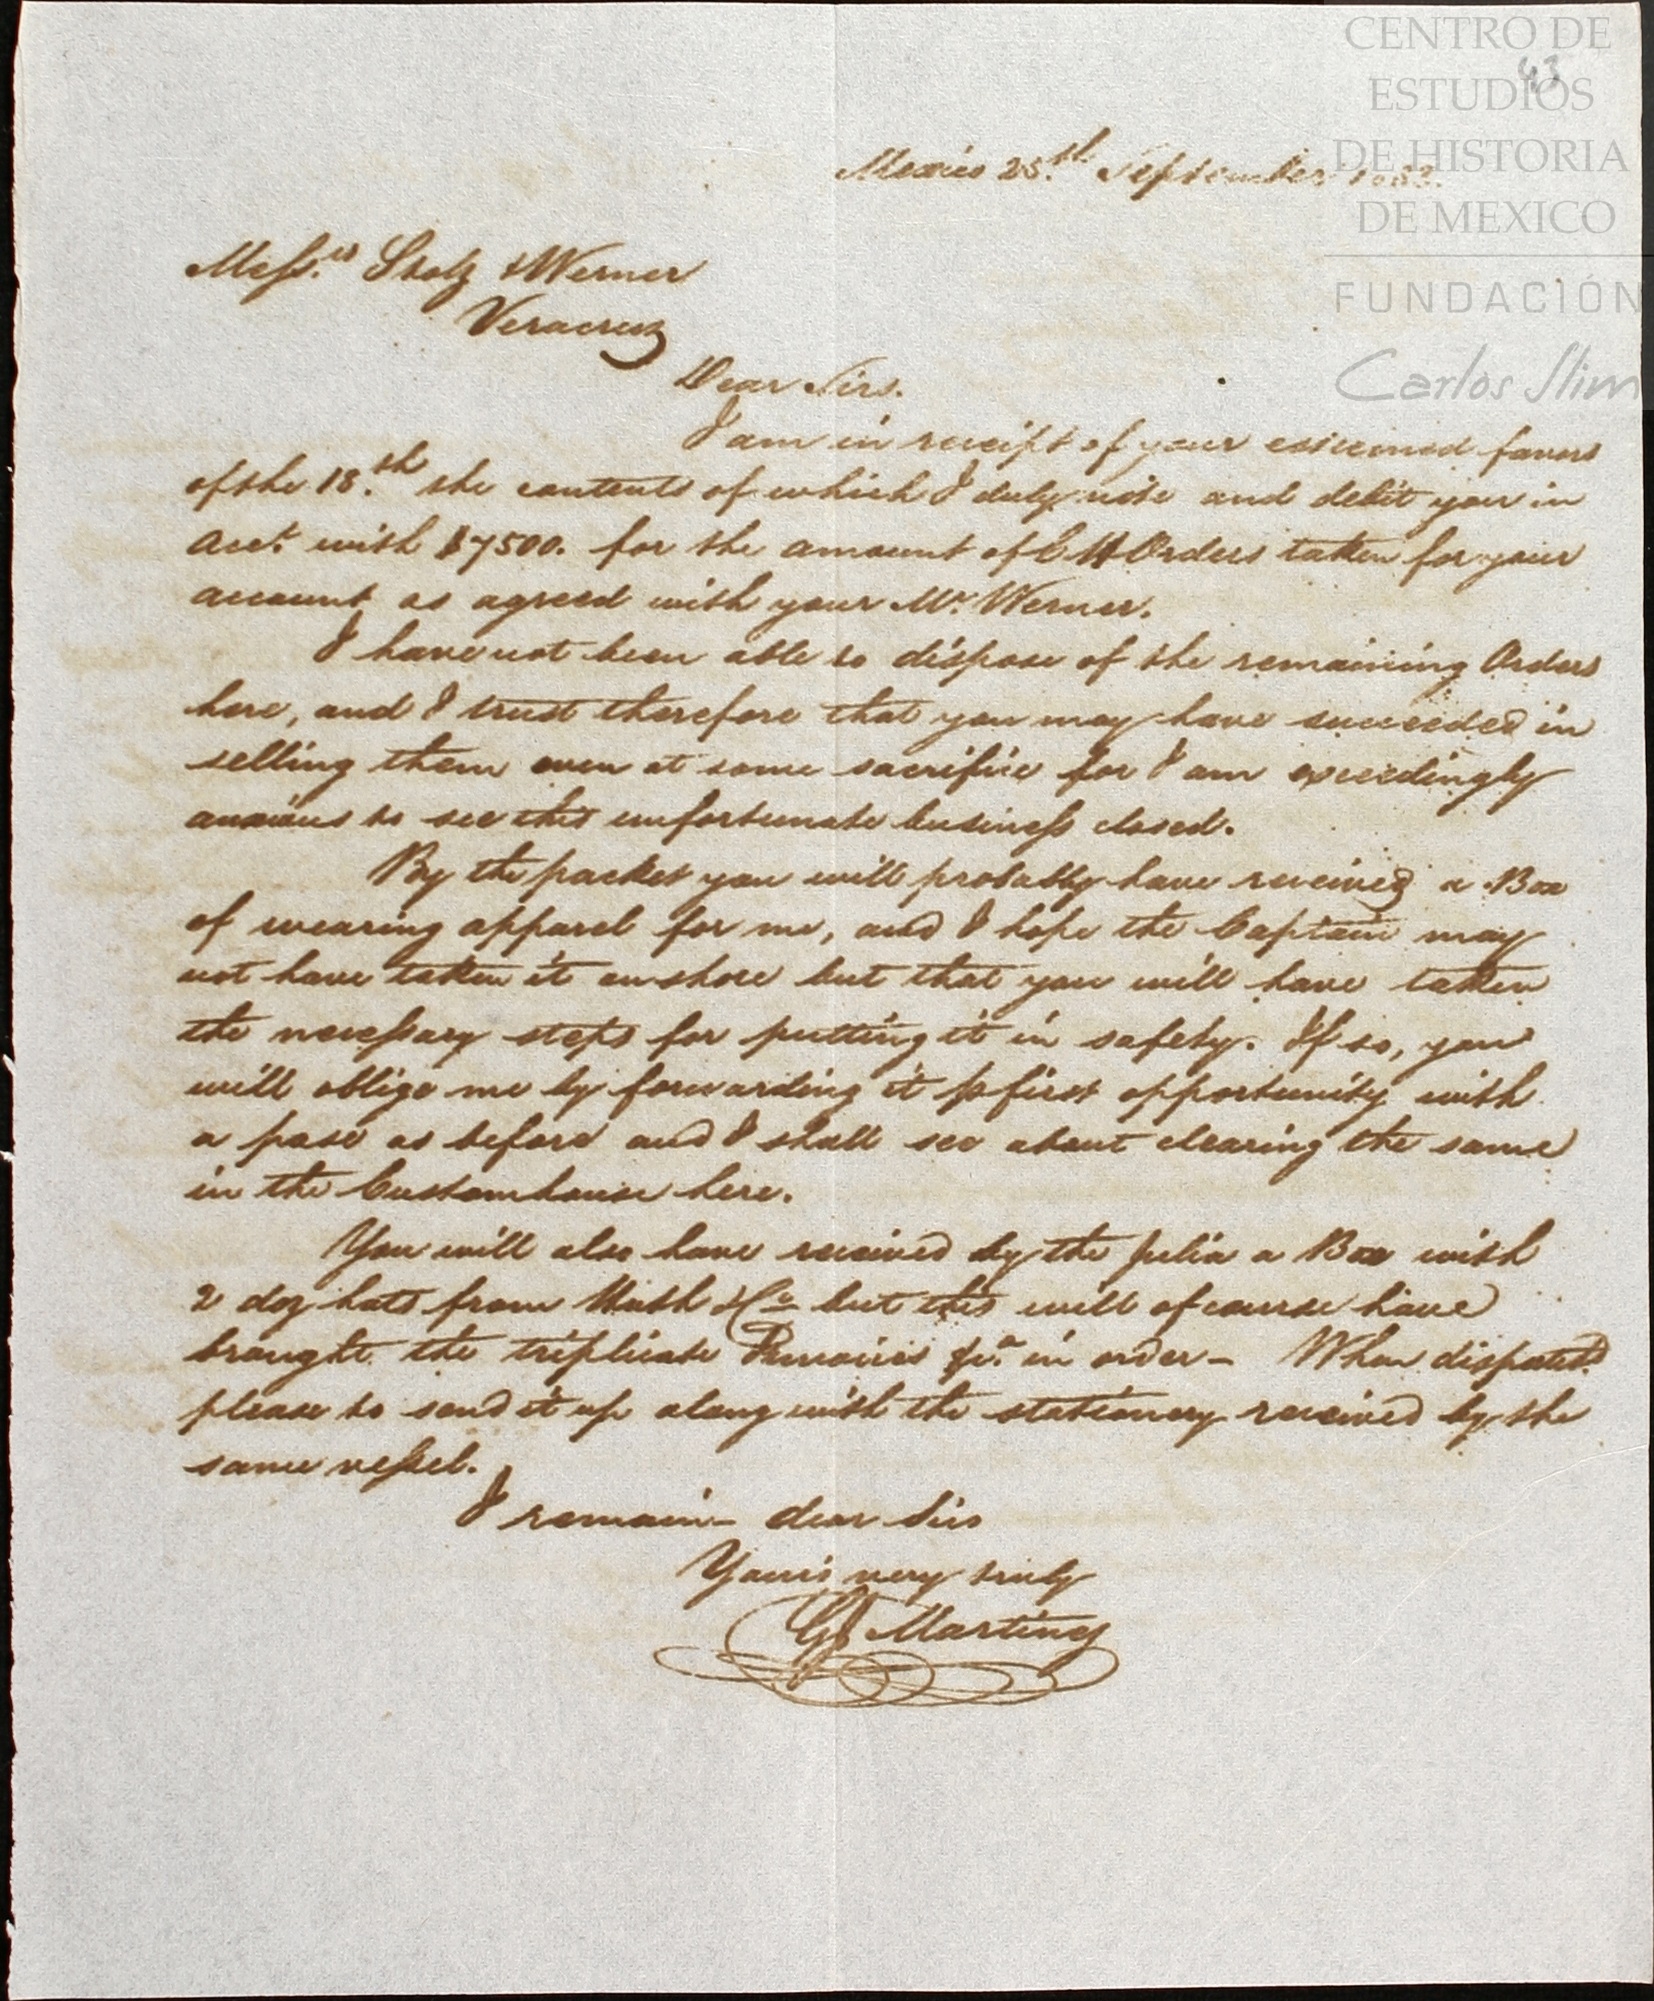 CENTRO DE
ESTUDIOS
DE HISTORIA
DE MEXICO
FUNDACIÓN
Carlos Slim
43
Mexico 25th September
Messrs Stolz & Werner
Veracruz
Dear Sirs.
I am in receipt of your esteemed favors
of the 18th the contents of which I duly note and debit you in
Acct. with $7500. for the amount of Orders taken for your
account as agreed with your Mr. Werner.
I have not been able to dispose of the remaining Orders
here, and I trust therefore that you may have succeeded in
selling them even at some sacrifice for I am exceedingly
anxious to see this unfortunate business closed.
By the packet you will probably have received a Box
of wearing apparel for me, and I hope the Captain may
not have taken it on shore but that you will have taken
the necessary steps for putting it in safety. If so, you
will oblige me by forwarding it p first opportunity with
a pase as before and I shall see about clearing the same
in the Customhouse here.
You will also have received by the Julia a Box with
2 doz hats from & Co but this will of course have
brought the triplicate &ca. in order – When
please to send it up along with the stationery received by the
same vessel.
I remain – dear Sirs
Yours very truly
Martinez